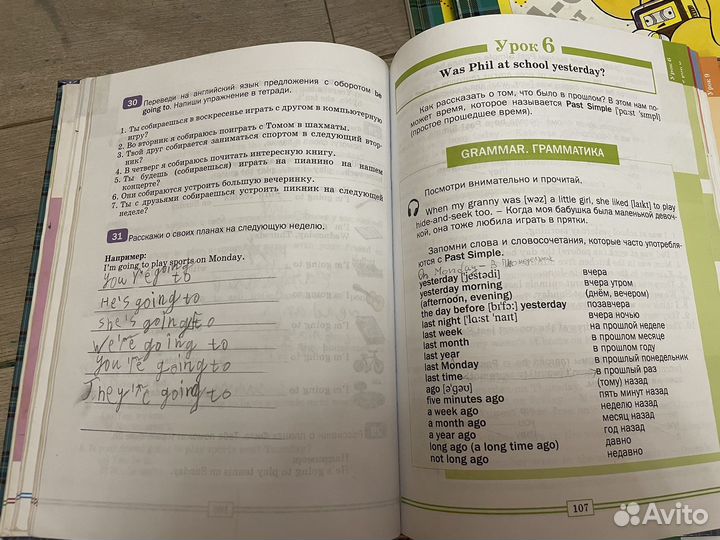 30 Переведи на английский язык предложения с оборотом be
going to. Напиши упражнение в тетради.
1. Ты собираешься в воскресенье играть с другом в компьютерную
игру?
2. Во вторник я собираюсь поиграть с Томом в шахматы.
3. Твой друг собирается заниматься спортом в следующий втор-
ник?
4. В четверг я собираюсь почитать интересную книгу.
5. Ты будешь (собираешься) играть на пианино на нашем
концерте?
6. Они собираются устроить большую вечеринку.
7. Ты с друзьями собираешься устроить пикник на следующей
неделе?
31 Расскажи о своих планах на следующую неделю.
Например:
I'm going to play sports on Monday.
You're going
to
He's going to
she's going to
We're going to
You're going to
They're going to
Урок 6
Was Phil at school yesterday?
Как рассказать о том, что было в прошлом? В этом нам по-
может время, которое называется Past Simple ['pɑ:st 'sɪmpl]
(простое прошедшее время).
GRAMMAR. ГРАММАТИКА
Посмотри внимательно и прочитай.
When my granny was [wəz] a little girl, she liked [laɪkt] to play
hide-and-seek too. – Когда моя бабушка была маленькой девоч-
кой, она тоже любила играть в прятки.
Запомни слова и словосочетания, которые часто употребля-
ются с Past Simple.
On Monday – в понедельник
yesterday ['jestədi] вчера
yesterday morning вчера утром
(afternoon, evening) (днём, вечером)
the day before [bɪ'fɔ:] yesterday позавчера
last night ['lɑ:st 'naɪt] вчера ночью
last week на прошлой неделе
last month в прошлом месяце
last year в прошлом году
last Monday в прошлый понедельник
last time в прошлый раз
ago [ə'gəʊ] (тому) назад
five minutes ago пять минут назад
a week ago неделю назад
a month ago месяц назад
a year ago год назад
long ago (a long time ago) давно
not long ago недавно
107
Урок 6
Урок 9
Avito